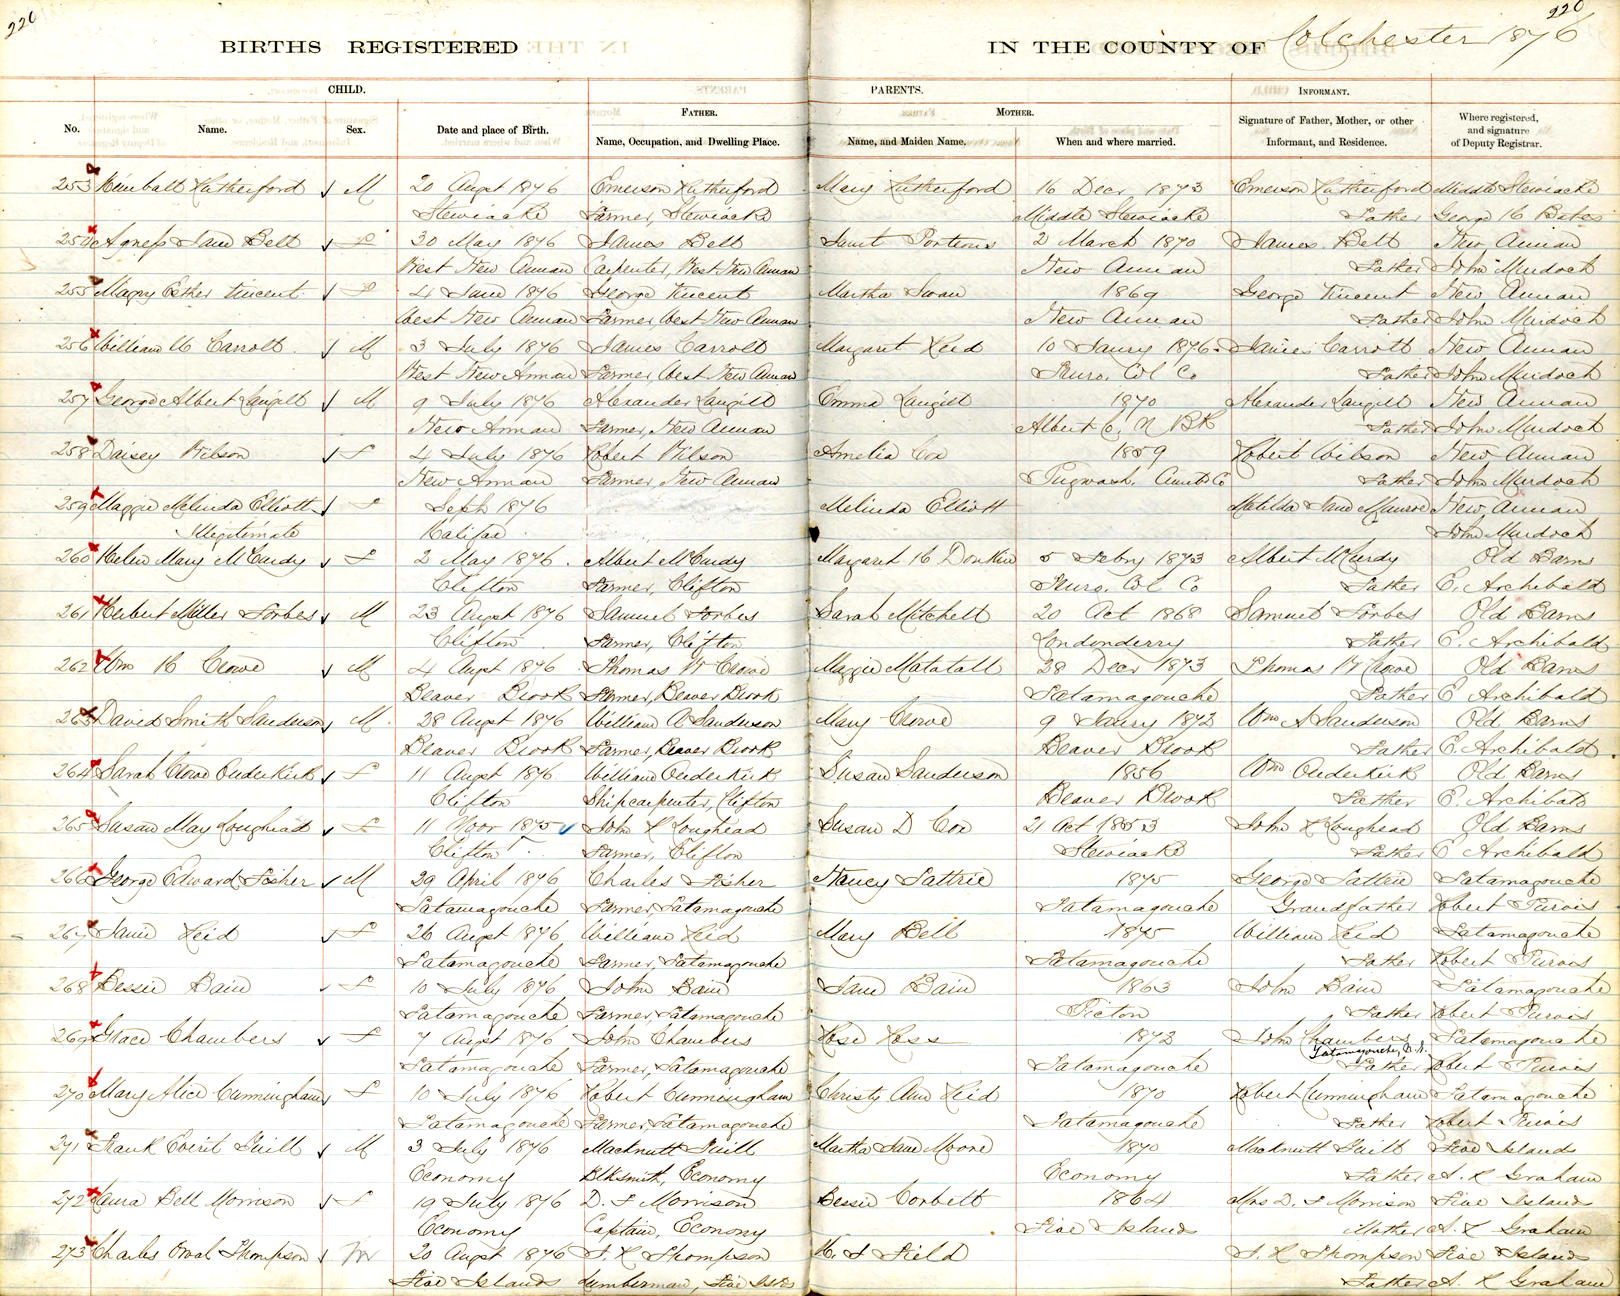 220
220
BIRTHS REGISTERED
IN THE COUNTY OF Colchester 1876
CHILD.
PARENTS.
INFORMANT.
FATHER.
MOTHER.
No.
Name.
Sex.
Date and place of Birth.
Name, Occupation, and Dwelling Place.
Name, and Maiden Name.
When and where married.
Signature of Father, Mother, or other Informant, and Residence.
Where registered, and signature of Deputy Registrar.
253 Kimball Rutherford M 20 Augst 1876 Emerson Rutherford Mary Rutherford 16 Decr 1873 Emerson Rutherford Middle Stewiacke
Stewiacke Farmer, Stewiacke Middle Stewiacke Father George H Bates
254 Agness Jane Bell F 30 May 1876 James Bell Janet Porteous 2 March 1870 James Bell New Annan
West New Annan Carpenter, West New Annan New Annan Father John Murdoch
255 Magny Esther Vincent F 4 June 1876 George Vincent Martha Swan 1869 George Vincent New Annan
West New Annan Farmer, West New Annan New Annan Father John Murdoch
256 William H Carroll M 3 July 1876 James Carroll Margaret Reid 10 Janry 1876 James Carroll New Annan
West New Annan Farmer, West New Annan Truro, Col Co Father John Murdoch
257 George Albert Langill M 9 July 1876 Alexander Langill Emma Langill 1870 Alexander Langill New Annan
New Annan Farmer, New Annan Albert C. N BK Father John Murdoch
258 Daisey Wilson F 4 July 1876 Robert Wilson Amelia Cox 1859 Robert Wilson New Annan
New Annan Farmer, New Annan Pugwash, Cumb Co Father John Murdoch
259 Maggie Melinda Elliott F Seph 1876 Melinda Elliott Matilda Jane Munroe New Annan
Illegitimate Halifax John Murdoch
260 Helen Mary McCurdy F 2 May 1876 Albert McCurdy Margaret H Donkin 5 Febry 1873 Albert McCurdy Old Barns
Clifton Farmer, Clifton Truro, Col Co Father E. Archibald
261 Herbert Miller Forbes M 23 Augst 1876 Samuel Forbes Sarah Mitchell 20 Oct 1868 Samuel Forbes Old Barns
Clifton Farmer, Clifton Londonderry Father E. Archibald
262 Wm H Crowe M 4 Augst 1876 Thomas W Crowe Maggie Matatall 28 Decr 1873 Thomas W Crowe Old Barns
Beaver Brook Farmer, Beaver Brook Tatamagouche Father E Archibald
263 David Smith Sanderson M 28 Augst 1876 William A Sanderson Mary Crowe 9 Janry 1873 Wm A Sanderson Old Barns
Beaver Brook Farmer, Beaver Brook Beaver Brook Father E. Archibald
264 Sarah Crowe Ouderkirk F 11 Augst 1876 William Ouderkirk Susan Sanderson 1856 Wm Ouderkirk Old Barns
Clifton Shipcarpenter, Clifton Beaver Brook Father E. Archibald
265 Susan May Loughead F 11 Novr 1875 John R Loughead Susan D Cox 21 Oct 1853 John R Loughead Old Barns
Clifton Farmer, Clifton Stewiacke Father E Archibald
266 George Edward Fisher M 29 April 1876 Charles Fisher Nancy Pattrie 1875 George Pattrie Tatamagouche
Tatamagouche Farmer, Tatamagouche Tatamagouche Grandfather Robert Purvis
267 Jane Reid F 26 Augst 1876 William Reid Mary Bell 1875 William Reid Tatamagouche
Tatamagouche Farmer, Tatamagouche Tatamagouche Father Robert Purvis
268 Bessie Bain F 10 July 1876 John Bain Jane Bain 1863 John Bain Tatamagouche
Tatamagouche Farmer, Tatamagouche Pictou Father Robert Purvis
269 Grace Chambers F 7 Augst 1876 John Chambers Rose Ross 1873 John Chambers Tatamagouche
Tatamagouche Farmer, Tatamagouche Tatamagouche Tatamagouche, Father Robert Purvis
270 Mary Alice Cunningham F 10 July 1876 Robert Cunningham Christy Ann Reid 1870 Robert Cunningham Tatamagouche
Tatamagouche Farmer, Tatamagouche Tatamagouche Father Robert Purvis
271 Frank Everit Fuill M 3 July 1876 Macknutt Fuill Martha Jane Moore 1870 Macknutt Fuill Five Islands
Economy Blksmith, Economy Economy Father A. R Graham
272 Laura Bell Morrison F 19 July 1876 D. F Morrison Bessie Corbett 1864 Mrs D. F Morrison Five Islands
Economy Captain, Economy Five Islands Mother A. R Graham
273 Charles Orval Thompson M 20 Augst 1876 J. R Thompson H. F Field J. R Thompson Five Islands
Five Islands Lumberman, Five Islds Father A. R Graham